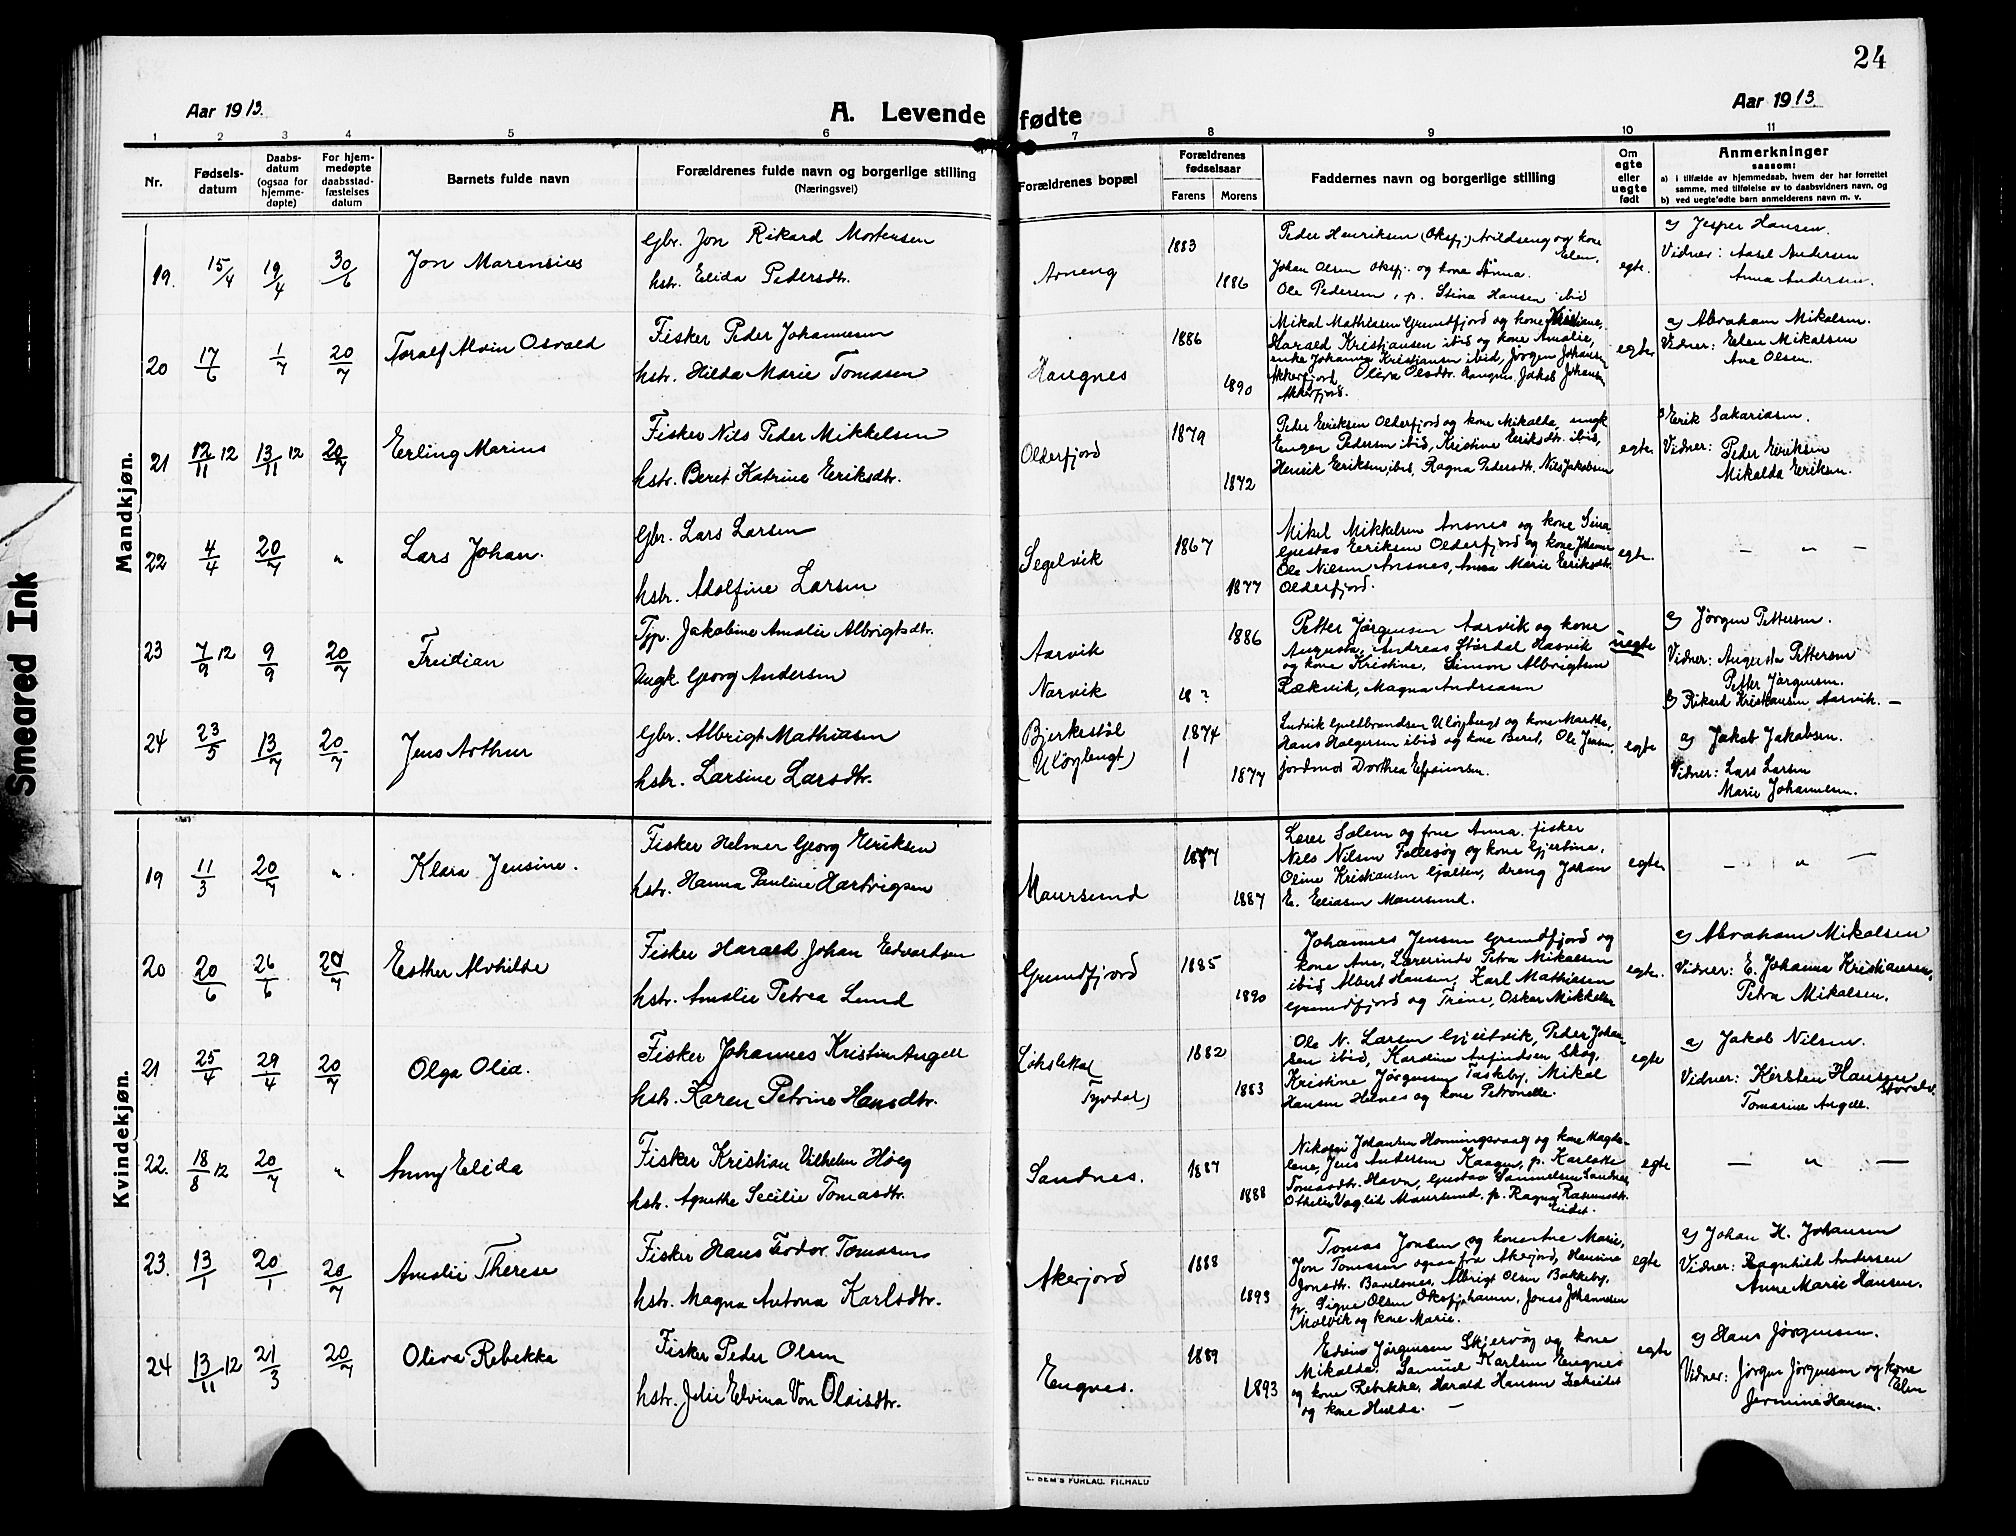 24
Aar 1913.
A. Levende fødte
Aar 1913.
1 2 3 4 5 6 7 8 9 10 11
Nr.
Fødsels-
datum
Daabs-
datum
(ogsaa for
hjemme-
døpte)
For hjem-
medøpte
daabsstad-
fæstelses
datum
Barnets fulde navn
Forældrenes fulde navn og borgerlige stilling
(Næringsvei)
Forældrenes bopæl
Forældrenes
fødselsaar
Farens Morens
Faddernes navn og borgerlige stilling
Om
egte
eller
uegte
født
Anmerkninger
saasom:
a) i tilfælde av hjemmedaab, hvem der har forrettet
samme, med tilføielse av to daabsvidners navn, og
b) ved uegtefødte børn anmelderens navn m. v.
Mandkjøn.
19. 15/4 19/4 30/6 Jon Marensius
Gbr. Jon Rikard Mortensen
hstr. Elida Pedersdtr.
Arneng
1883
1886
Peder Henriksen (Oksfj.) Avildseng og kone
Elen,
Johan Olsen Oksfj. og kone Anna.
Ole Pedersen, p. Stina Hansen ibid
egte.
a) Jesper Hansen.
Vidner: Aasel Andersen
Anna Andersen.
20 17/6 1/7 20/7 Toralf Alvin Osvald
Fisker Peder Johannesen
hstr. Hilda Marie Tomasen
Haugnes
1886
1890
Mikal Mathiasen Grundfjord og kone Kristiane,
Harald Kristiansen ibid og kone Amalie,
enke Johanna Kristiansen ibid, Jørgen Johansen
Akkerfjord, Oliva Olsdtr. Haugnes, Jakob Johansen
Akkerfjord.
egte
a) Abraham Mikalsen.
Vidner: Elen Mikalsen
Ane Olsen.
21 12/11 12 13/11 12 20/7 Erling Marius
Fisker Nils Peder Mikkelsen
hstr. Beret Katrine Eriksdtr.
Olderfjord
1879
1872
Peder Eriksen Olderfjord og kone Mikalda, ungk
Enger Pedersen ibid, Kristine Eriksdtr. ibid,
Henrik Eriksen, ibid, Ragna Pedersdtr. Nils Jakobsen
egte.
Erik Sakariasen.
Vidner: Peder Eriksen
Mikalda Eriksen.
22 4/4 20/7 " Lars Johan.
Gbr. Lars Larsen
hstr. Adolfine Larsen
Segelvik
1867
1877
Mikel Mikkelsen Ansnes og kone Sina
Gustav Eriksen Olderfjord og kone Johanne
Ole Nilsen Ansnes, Anna Marie Eriksdtr.
Olderfjord.
egte.
— " —
23 7/9 12 9/9 20/7 Fridian
Tjp. Jakobine Amalie Albrigtsdtr.
Ungk. Georg Andersen
Aarvik
Narvik
1886
18 ?
Petter Jørgensen Aarvik og kone
Augusta, Andreas Størdal Hasvik
og kone Kristine, Simon Albrigtsen
Rækvik, Magna Andreasen
uegte
a) Jørgen Pettersen.
Vidner: Augusta Pettersen
Petter Jørgensen.
b) Rikard Kristiansen Aarvik. —
24 23/5 13/7 20/7 Jens Arthur
Gbr. Albrigt Mathiasen
hstr. Larsine Larsdtr.
Bjerkestøl
(Uløybugt)
1874
1877
Ludvik Guldbrandsen Uløybugt og kone Marthe,
Hans Holgersen ibid og kone Beret, Ole Jensen,
jordmor Dorthea Efraimsen.
egte
a) Jakob Jakobsen.
Vidner: Lars Larsen
Marie Johannesen.
Kvindekjøn.
19 11/3 20/7 " Klara Jensine.
Fisker Helmer Georg Eriksen
hstr. Hanna Pauline Hartvigsen
Maursund
1877
1887
Lærer Salem og frue Anna. fisker
Nils Nilsen Follesøy og kone Gjertine,
Oline Kristiansen Gjølsen, dreng Johan
E. Eliasen Maursund.
egte
— " —
20 20/6 26/6 20/7 Esther Alvhilde
Fisker Harald Johan Edvardsen
hstr. Amalie Petrea Lund
Grundfjord
1885
1890
Johannes Jensen Grundfjord og
kone Ane, Lærerinde Petra Mikalsen
ibid, Albert Hansen, Karl Mathiasen
Grundfjord og Trine, Oskar Mikkelsen
egte.
a) Abraham Mikalsen
Vidner: E. Johanna Kristiansen,
Petra Mikalsen.
21 25/4 29/4 20/7 Olga Olea.
Fisker Johannes Kristian Angell
hstr. Karen Petrine Hansdtr.
Løkslettal
Tyvdal)
1882
1883
Ole N. Larsen Gjeitvik, Peder Johan-
sen ibid, Karoline Arfindsen Skog,
Kristine Jørgensen Taskeby, Mikal
Hansen Helnes og kone Petronelle.
egte
a) Jakob Nilsen.
Vidner: Kersten Hansen
Tomasine Angell.
22. 18/8 12 20/7 " Anny Elida
Fisker Kristian Vilhelm Høeg
hstr. Agnethe Secilie Tomasdtr.
Sandnes.
1887
1888
Nikolai Johansen Honningsvaag og kone Magda-
lena, Jens Andersen Kaagen, p. Karlotte
Tomasdtr. Havn, Gustav Samuelsen Sandnes,
Othelie Voglid Maursund, p. Ragna Rasmusdtr.
Eidet.
egte
— " —
23. 13/1 20/1 20/7 Amalie Therese
Fisker Hans Teodor Tomasen
hstr. Magna Antona Karlsdtr.
Akerjord
1888
1893
Tomas Jonsen og kone Ane Marie,
Jon Tomassen ogsaa fra Akerjord, Hansina
Jonsdtr. Bavelsnes, Albrigt Olsen Bakkeby,
p. Signe Olsen Oksfjohavn, Jonas Johannesen
Molvik og kone Marie.
egte
a) Johan K. Johansen
Vidner: Ragnhild Andersen
Anne Marie Hansen.
24 13/11 12 21/3 20/7 Oliva Rebekka
Fisker Peder Olsen
hstr. Julie Elvina Von Olaisdtr.
Engnes.
1889
1893
Edvin Jørgensen Skjervøy og kone
Mikalda, Samuel Karlsen Engnes
og kone Rebekke, Harald Hansen Lekeidet
og kone Hulda. —
egte
a) Hans Jørgensen.
Vidner: Jørgen Jørgensen og kone
Elen
Jermine Hansen.
E. SEM'S FORLAG, FR.HALD
Smeared Ink